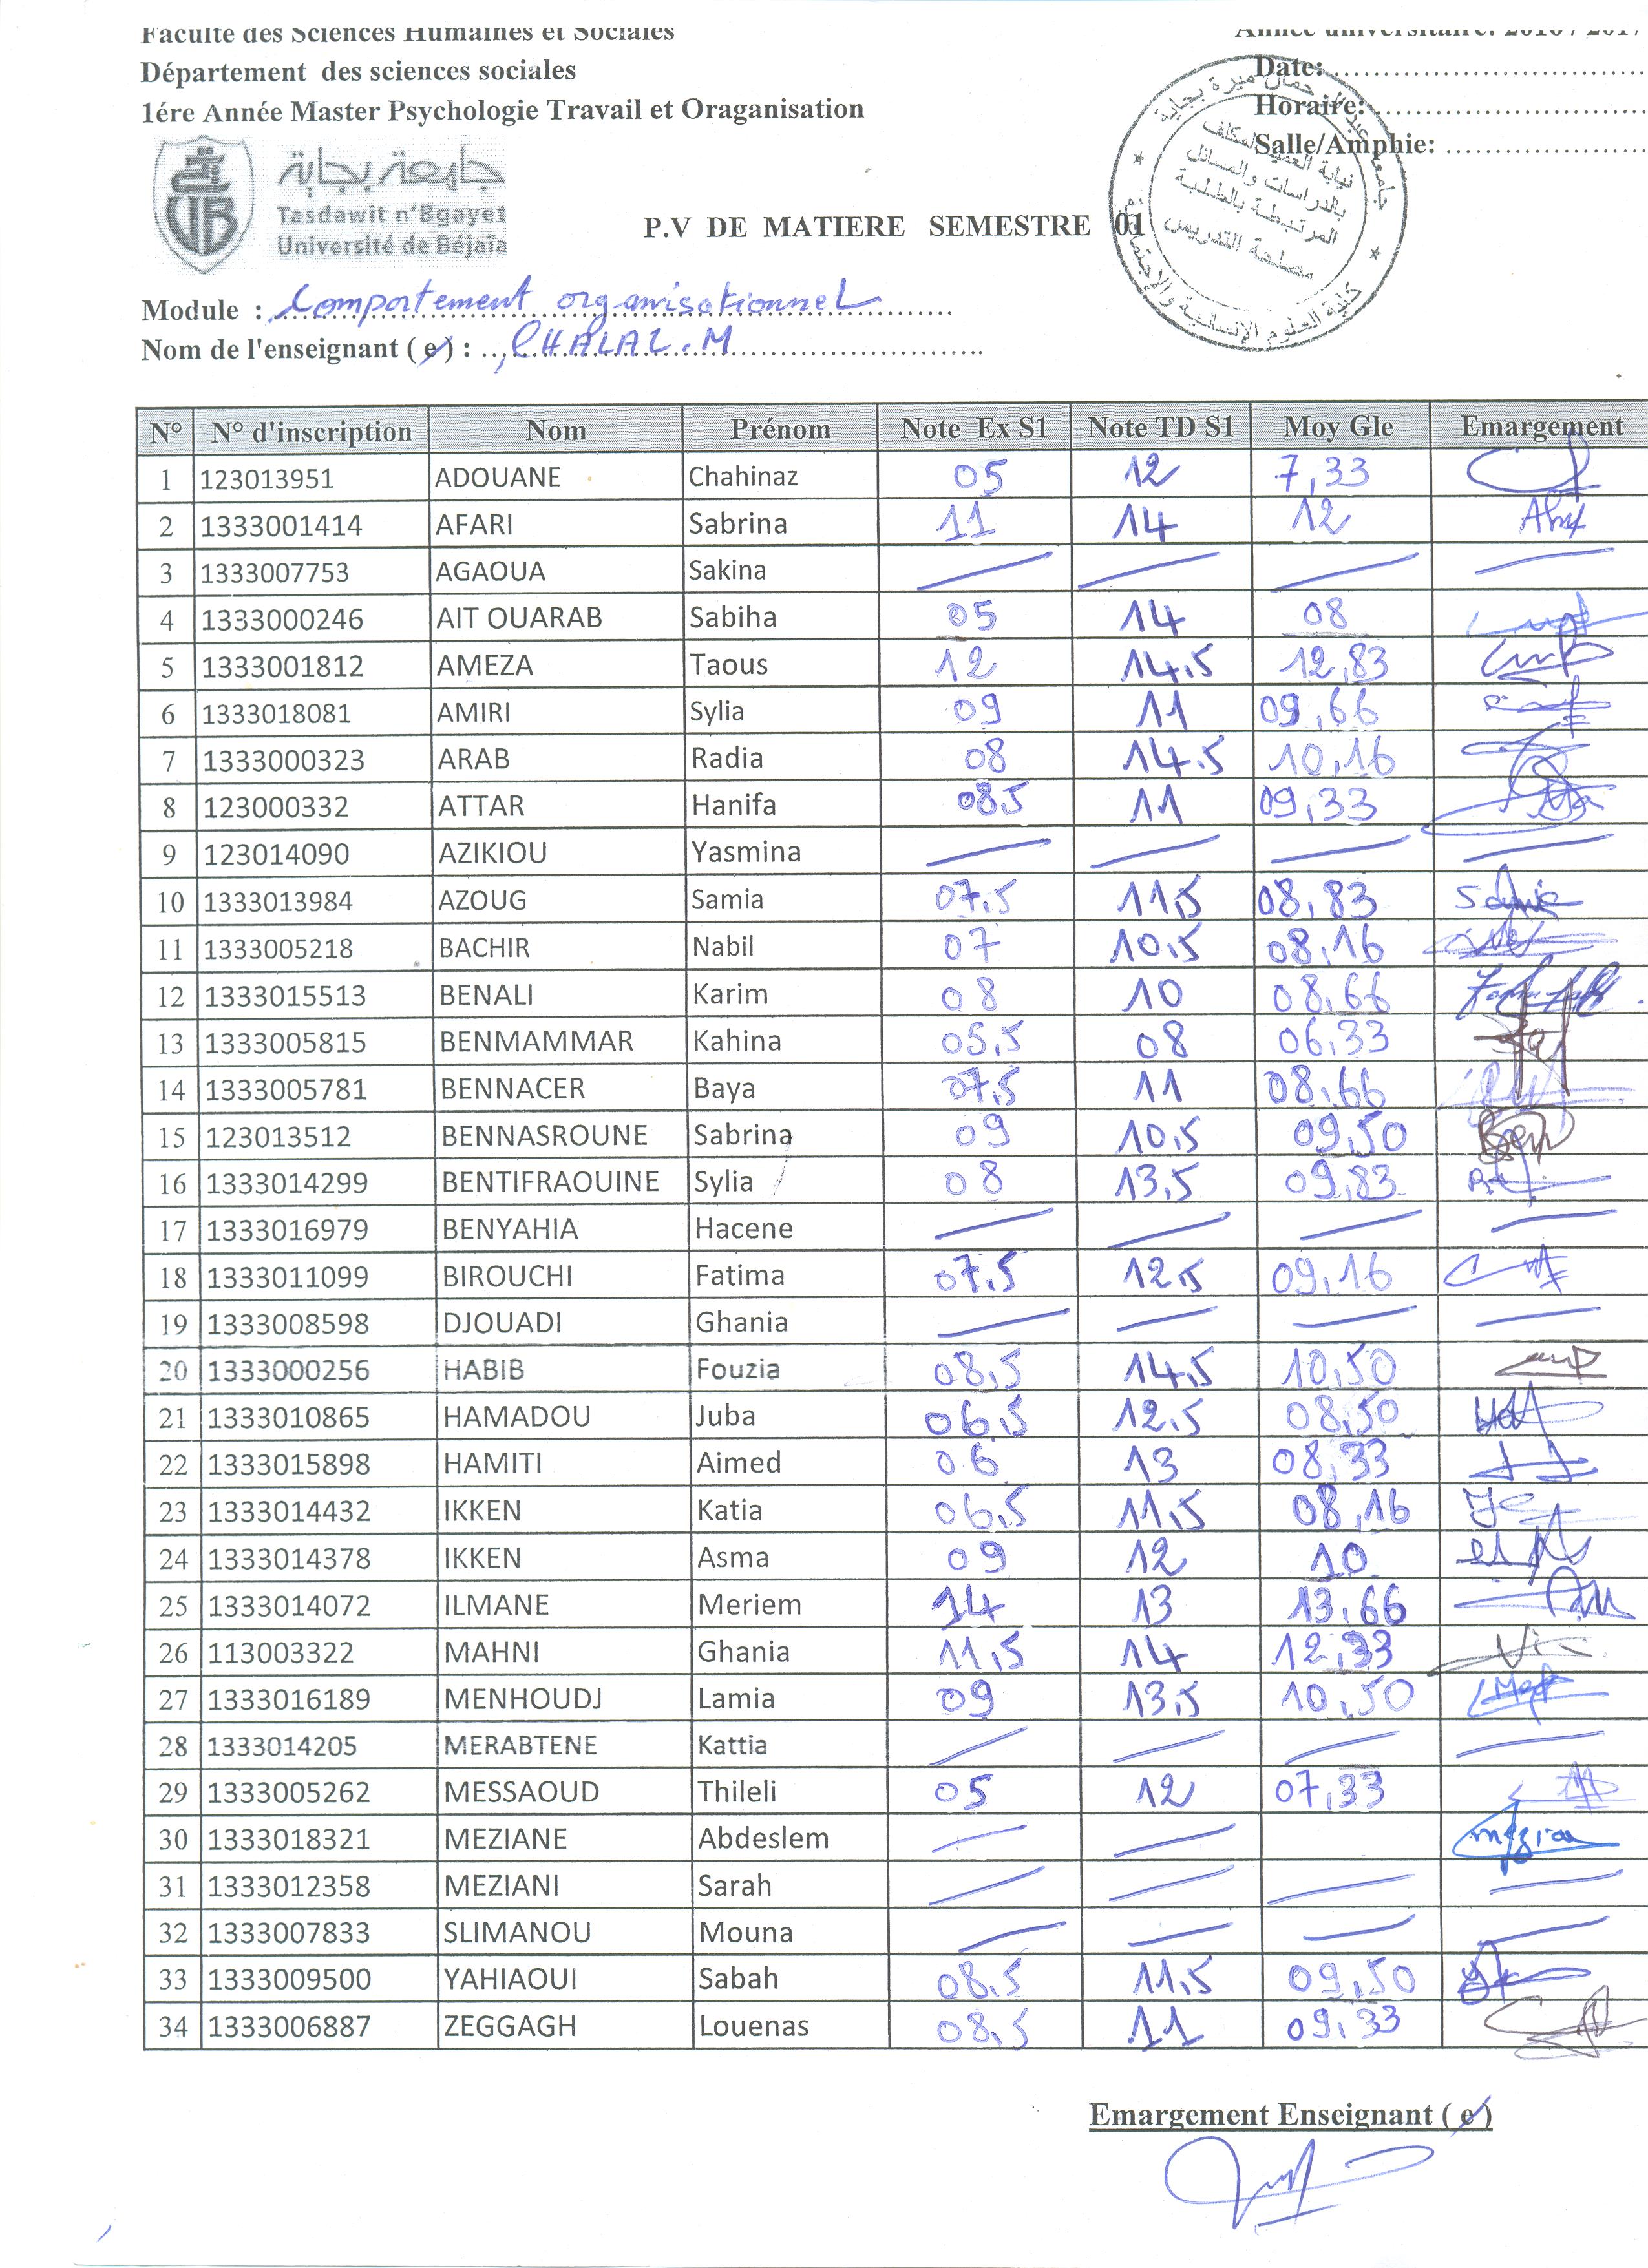 Faculté des Sciences Humaines et Sociales
Année universitaire: 2016 / 2017
Département des sciences sociales
Date: ..........
1ére Année Master Psychologie Travail et Oraganisation
Horaire: ..........
Salle/Amphie: ..........
جامعة بجاية
Tasdawit n'Bgayet
Université de Béjaïa
نيابة العميد المكلف
بالدراسات والمسائل
المرتبطة بالطلبة
مصلحة التدريس
كلية العلوم الإنسانية والإجتماعية
P.V DE MATIERE SEMESTRE 01
Module : Comportement organisationnel
Nom de l'enseignant ( e ) : CHALAL.M
N° N° d'inscription Nom Prénom Note Ex S1 Note TD S1 Moy Gle Emargement
1 123013951 ADOUANE Chahinaz 05 12 7,33
2 1333001414 AFARI Sabrina 11 14 12
3 1333007753 AGAOUA Sakina
4 1333000246 AIT OUARAB Sabiha 05 14 08
5 1333001812 AMEZA Taous 12 14,5 12,83
6 1333018081 AMIRI Sylia 09 11 09,66
7 1333000323 ARAB Radia 08 14.5 10,16
8 123000332 ATTAR Hanifa 08,5 11 09,33
9 123014090 AZIKIOU Yasmina
10 1333013984 AZOUG Samia 07,5 11,5 08,83 Samia
11 1333005218 BACHIR Nabil 07 10,5 08,16
12 1333015513 BENALI Karim 08 10 08,66
13 1333005815 BENMAMMAR Kahina 05,5 08 06,33
14 1333005781 BENNACER Baya 07,5 11 08,66
15 123013512 BENNASROUNE Sabrina 09 10,5 09,50
16 1333014299 BENTIFRAOUINE Sylia 08 13,5 09,83
17 1333016979 BENYAHIA Hacene
18 1333011099 BIROUCHI Fatima 07,5 12,5 09,16
19 1333008598 DJOUADI Ghania
20 1333000256 HABIB Fouzia 08,5 14,5 10,50
21 1333010865 HAMADOU Juba 06,5 12,5 08,50
22 1333015898 HAMITI Aimed 06 13 08,33
23 1333014432 IKKEN Katia 06,5 11,5 08,16
24 1333014378 IKKEN Asma 09 12 10
25 1333014072 ILMANE Meriem 14 13 13,66
26 113003322 MAHNI Ghania 11,5 14 12,33
27 1333016189 MENHOUDJ Lamia 09 13,5 10,50
28 1333014205 MERABTENE Kattia
29 1333005262 MESSAOUD Thileli 05 12 07,33
30 1333018321 MEZIANE Abdeslem
31 1333012358 MEZIANI Sarah
32 1333007833 SLIMANOU Mouna
33 1333009500 YAHIAOUI Sabah 08,5 11,5 09,50
34 1333006887 ZEGGAGH Louenas 08,5 11 09,33
Emargement Enseignant ( e )